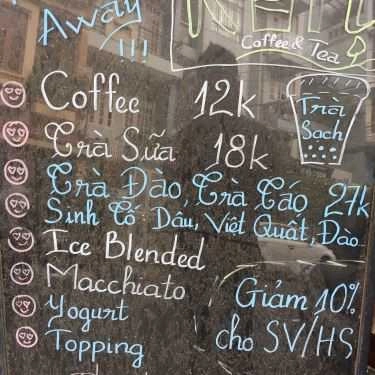 Away
!!!
Coffee & Tea
Coffee 12k
Trà Sữa 18k
Trà
Sạch
Trà Đào, Trà Táo 27k
Sinh Tố: Dâu, Việt Quất, Đào
Ice Blended
Macchiato
Yogurt
Topping
Giảm 10%
cho SV/HS